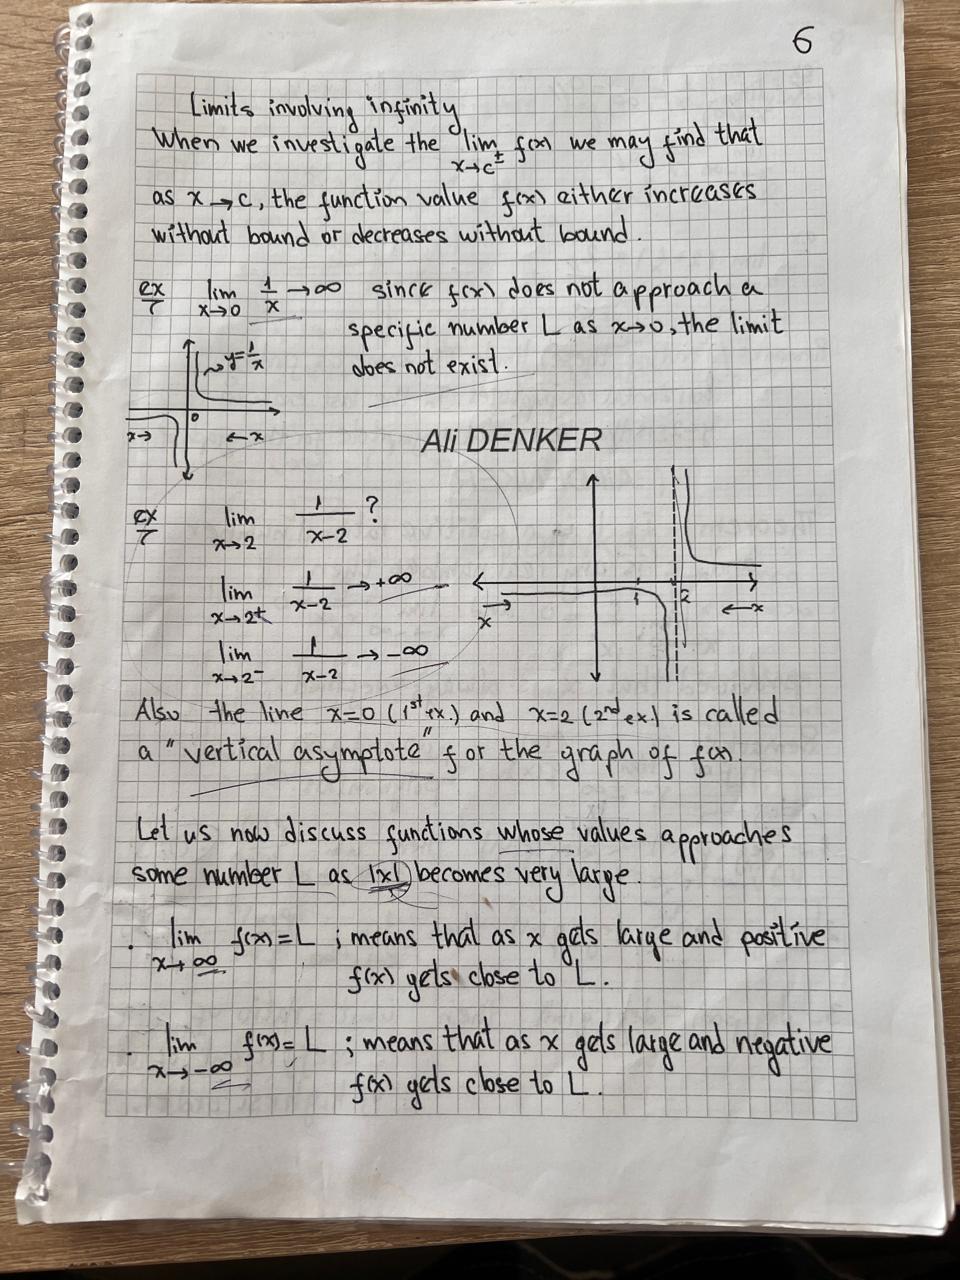 6
Limits involving infinity
When we investigate the lim x→c± f(x) we may find that
as x→c, the function value f(x) either increases
without bound or decreases without bound.
ex/ lim x→0 1/x →∞ since f(x) does not approach a
specific number L as x→0, the limit
does not exist.
y=1/x
0
x→ ←x
Ali DENKER
ex/ lim x→2 1/x-2 ?
lim x→2+ 1/x-2 → +∞
lim x→2- 1/x-2 → -∞
1 2
x → ←x
Also the line x=0 (1st ex.) and x=2 (2nd ex.) is called
a "vertical asymptote" for the graph of f(x).
Let us now discuss functions whose values approaches
some number L as |x| becomes very large.
. lim x→∞ f(x)=L ; means that as x gets large and positive
f(x) gets close to L.
. lim x→-∞ f(x)=L ; means that as x gets large and negative
f(x) gets close to L.